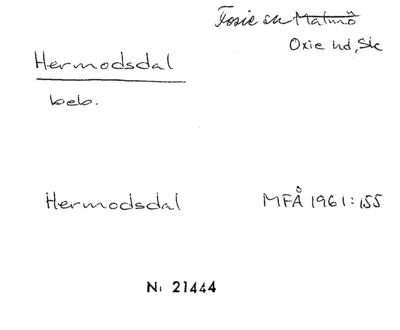 Fosie sn Malmö
Oxie hd, Sk
Hermodsdal
beb.
Hermodsdal MFÅ 1961:155
N: 21444